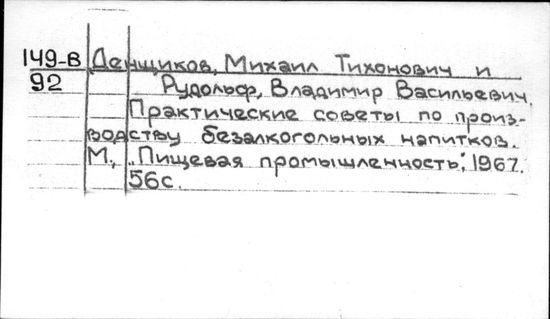 149-В Денщиков, Михаил Тихонович и
92 Рудольф, Владимир Васильевич.
Практические советы по произ-
водству безалкогольных напитков.
М., „Пищевая промышленность", 1967.
56с.